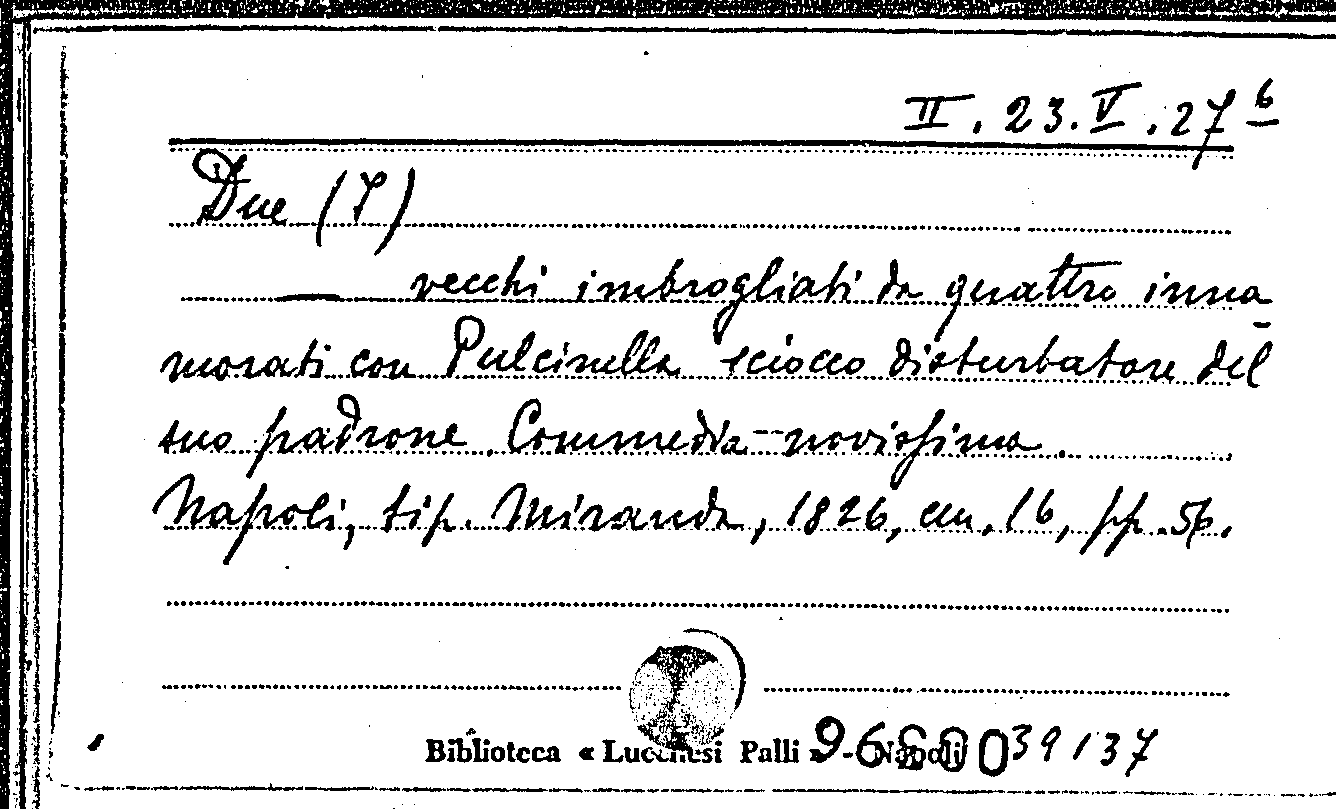 II. 23. V. 27 6
Due (I)
— vecchi imbrogliati da quattro inna
morati con Pulcinella sciocco disturbatore del
suo padrone. Commedia novissima.
Napoli, tip. Miranda, 1826, cm. 16, pp. 56.
Biblioteca « Lucchesi Palli » - Napoli
039137